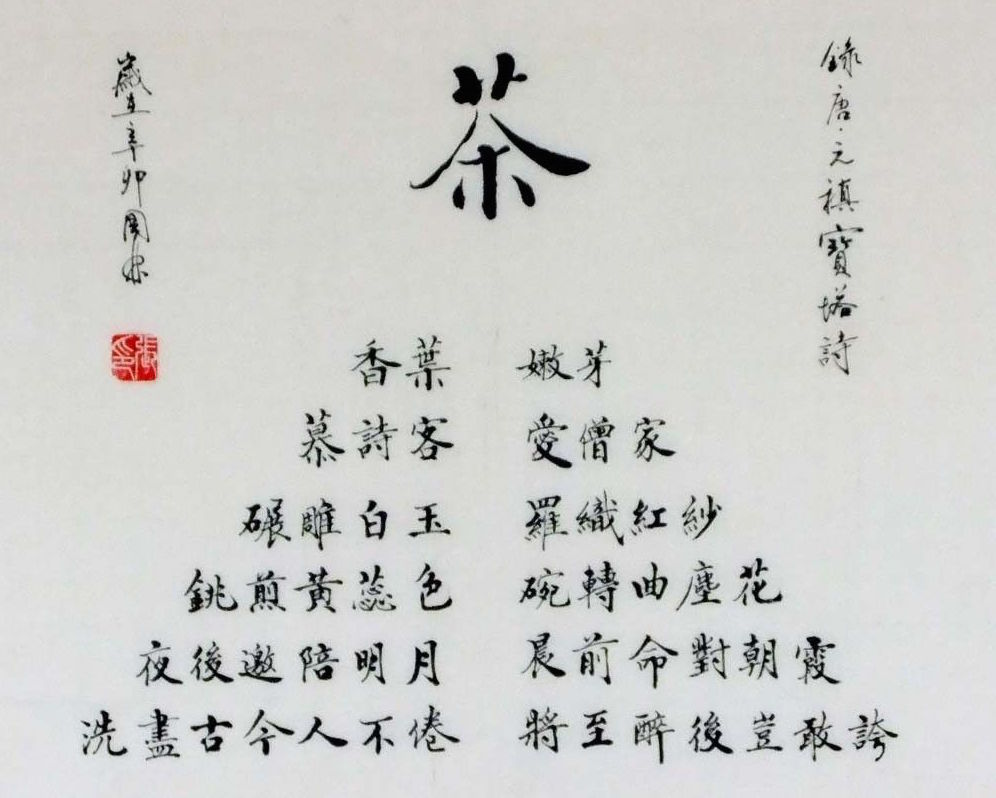 錄唐·元禛寶塔詩
茶
香葉 嫩芽
慕詩客 愛僧家
碾雕白玉 羅織紅紗
銚煎黃蕊色 碗轉曲塵花
夜後邀陪明月 晨前命對朝霞
洗盡古今人不倦 將至醉後豈敢誇
歲在辛卯
張印